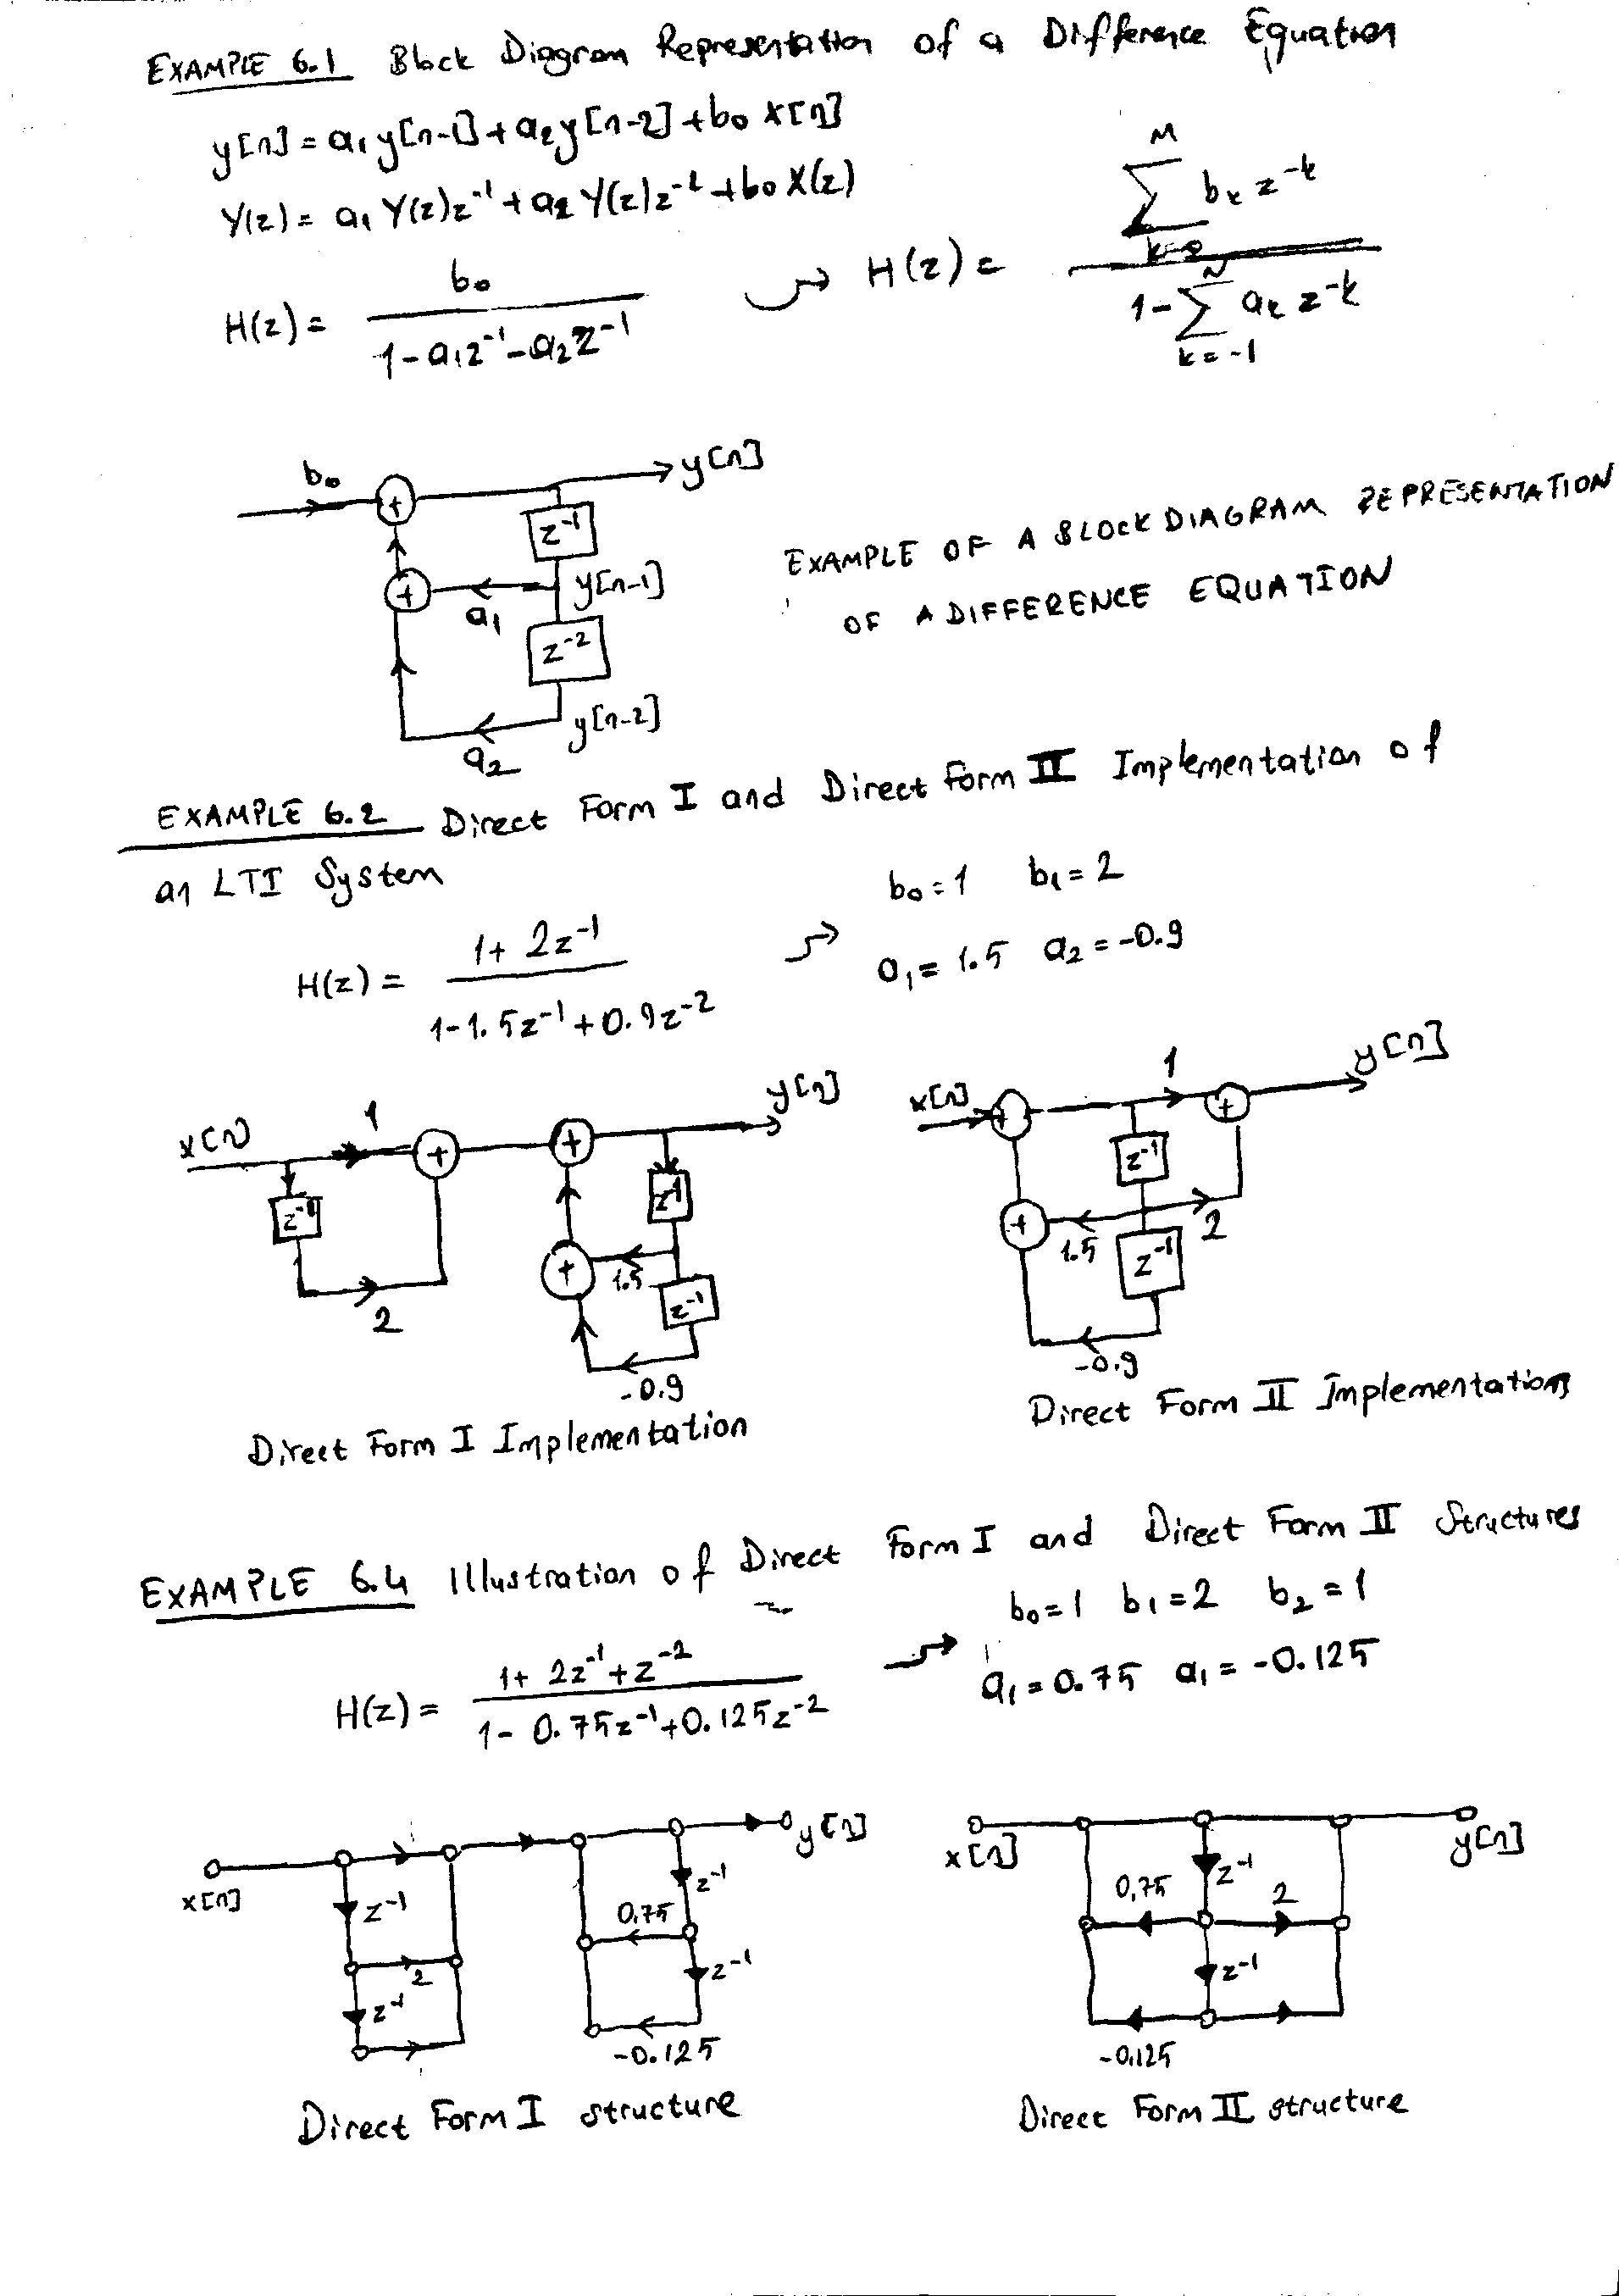 EXAMPLE 6.1 Block Diagram Representation of a Difference Equation
y[n] = a₁y[n-1] + a₂y[n-2] + b₀ x[n]
Y(z) = a₁ Y(z)z⁻¹ + a₂ Y(z)z⁻² + b₀ X(z)
H(z) = b₀ / (1 - a₁z⁻¹ - a₂z⁻¹) ⤳ H(z) = (M ∑ k=0 bₖ z⁻ᵏ) / (1 - N ∑ k=-1 aₖ z⁻ᵏ)
b₀ + y[n]
z⁻¹
+ a₁ y[n-1]
z⁻²
a₂ y[n-2]
EXAMPLE OF A BLOCK DIAGRAM REPRESENTATION
OF A DIFFERENCE EQUATION
EXAMPLE 6.2 Direct Form I and Direct Form II Implementation of
an LTI System
b₀ = 1 b₁ = 2
H(z) = (1 + 2z⁻¹) / (1 - 1.5z⁻¹ + 0.9z⁻²) ⤳ a₁ = 1.5 a₂ = -0.9
x[n] 1 + + y[n]
z⁻¹ z⁻¹
2 + 1.5 z⁻¹
-0.9
Direct Form I Implementation
x[n] + 1 + y[n]
z⁻¹
+ 1.5 2
z⁻¹
-0.9
Direct Form II Implementations
EXAMPLE 6.4 Illustration of Direct Form I and Direct Form II Structures
b₀ = 1 b₁ = 2 b₂ = 1
H(z) = (1 + 2z⁻¹ + z⁻²) / (1 - 0.75z⁻¹ + 0.125z⁻²) ⤳ a₁ = 0.75 a₁ = -0.125
x[n] y[n]
z⁻¹ z⁻¹
2 0,75
z⁻¹ z⁻¹
-0.125
Direct Form I structure
x[n] y[n]
z⁻¹
0,75 2
z⁻¹
-0,125
Direct Form II structure